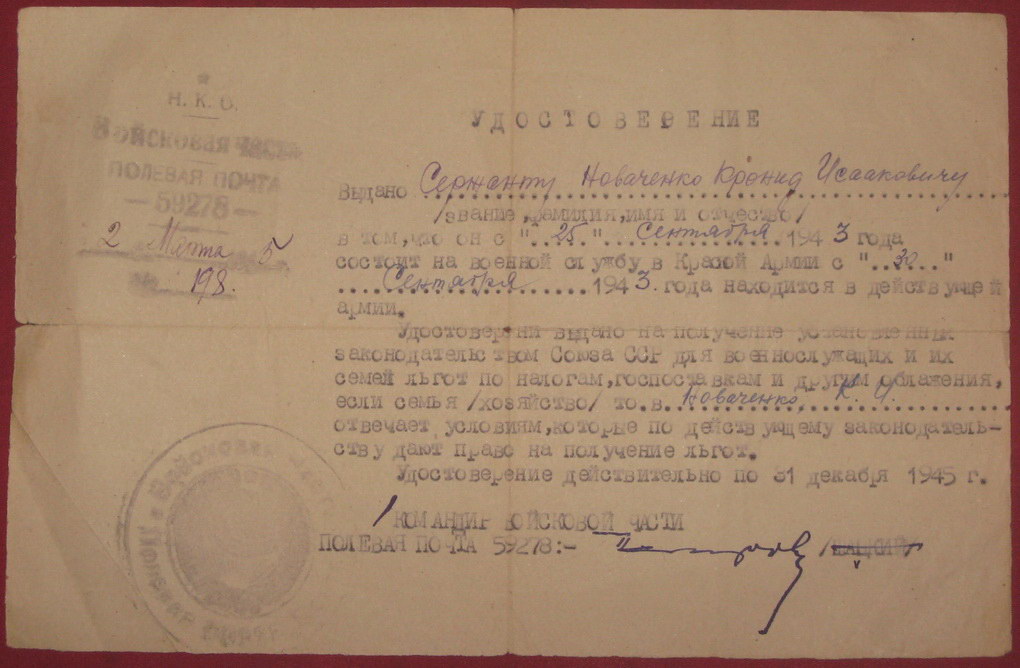 Н. К. О.
Войсковая часть
ПОЛЕВАЯ ПОЧТА
— 59278 —
2 Марта 5
№ 198.
УДОСТОВЕРЕНИЕ
Выдано Сержанту Новаченко Кронид Исааковичу
/звание, фамилия,имя и отчество/
в том,что он с "..25.."...Сентября...194 3 года
состоит на военной службу в Красой Армии с "..30.."
....Сентября......194 3. года находится в действущей
армии.
Удостоверени выдано на получение установленных
законодательством Союза ССР для военнослужащих и их
семей льгот по налогам,госпоставкам и другим облажения,
если семья /хозяйство/ то.в. Новаченко К. И.
отвечает условиям,которые по действущему законодатель-
ству дают право на получение льгот.
Удостоверение действительно по 31 декабря 1945 г.
КОМАНДИР ВОЙСКОВОЙ ЧАСТИ
ПОЛЕВАЯ ПОЧТА 59278:-